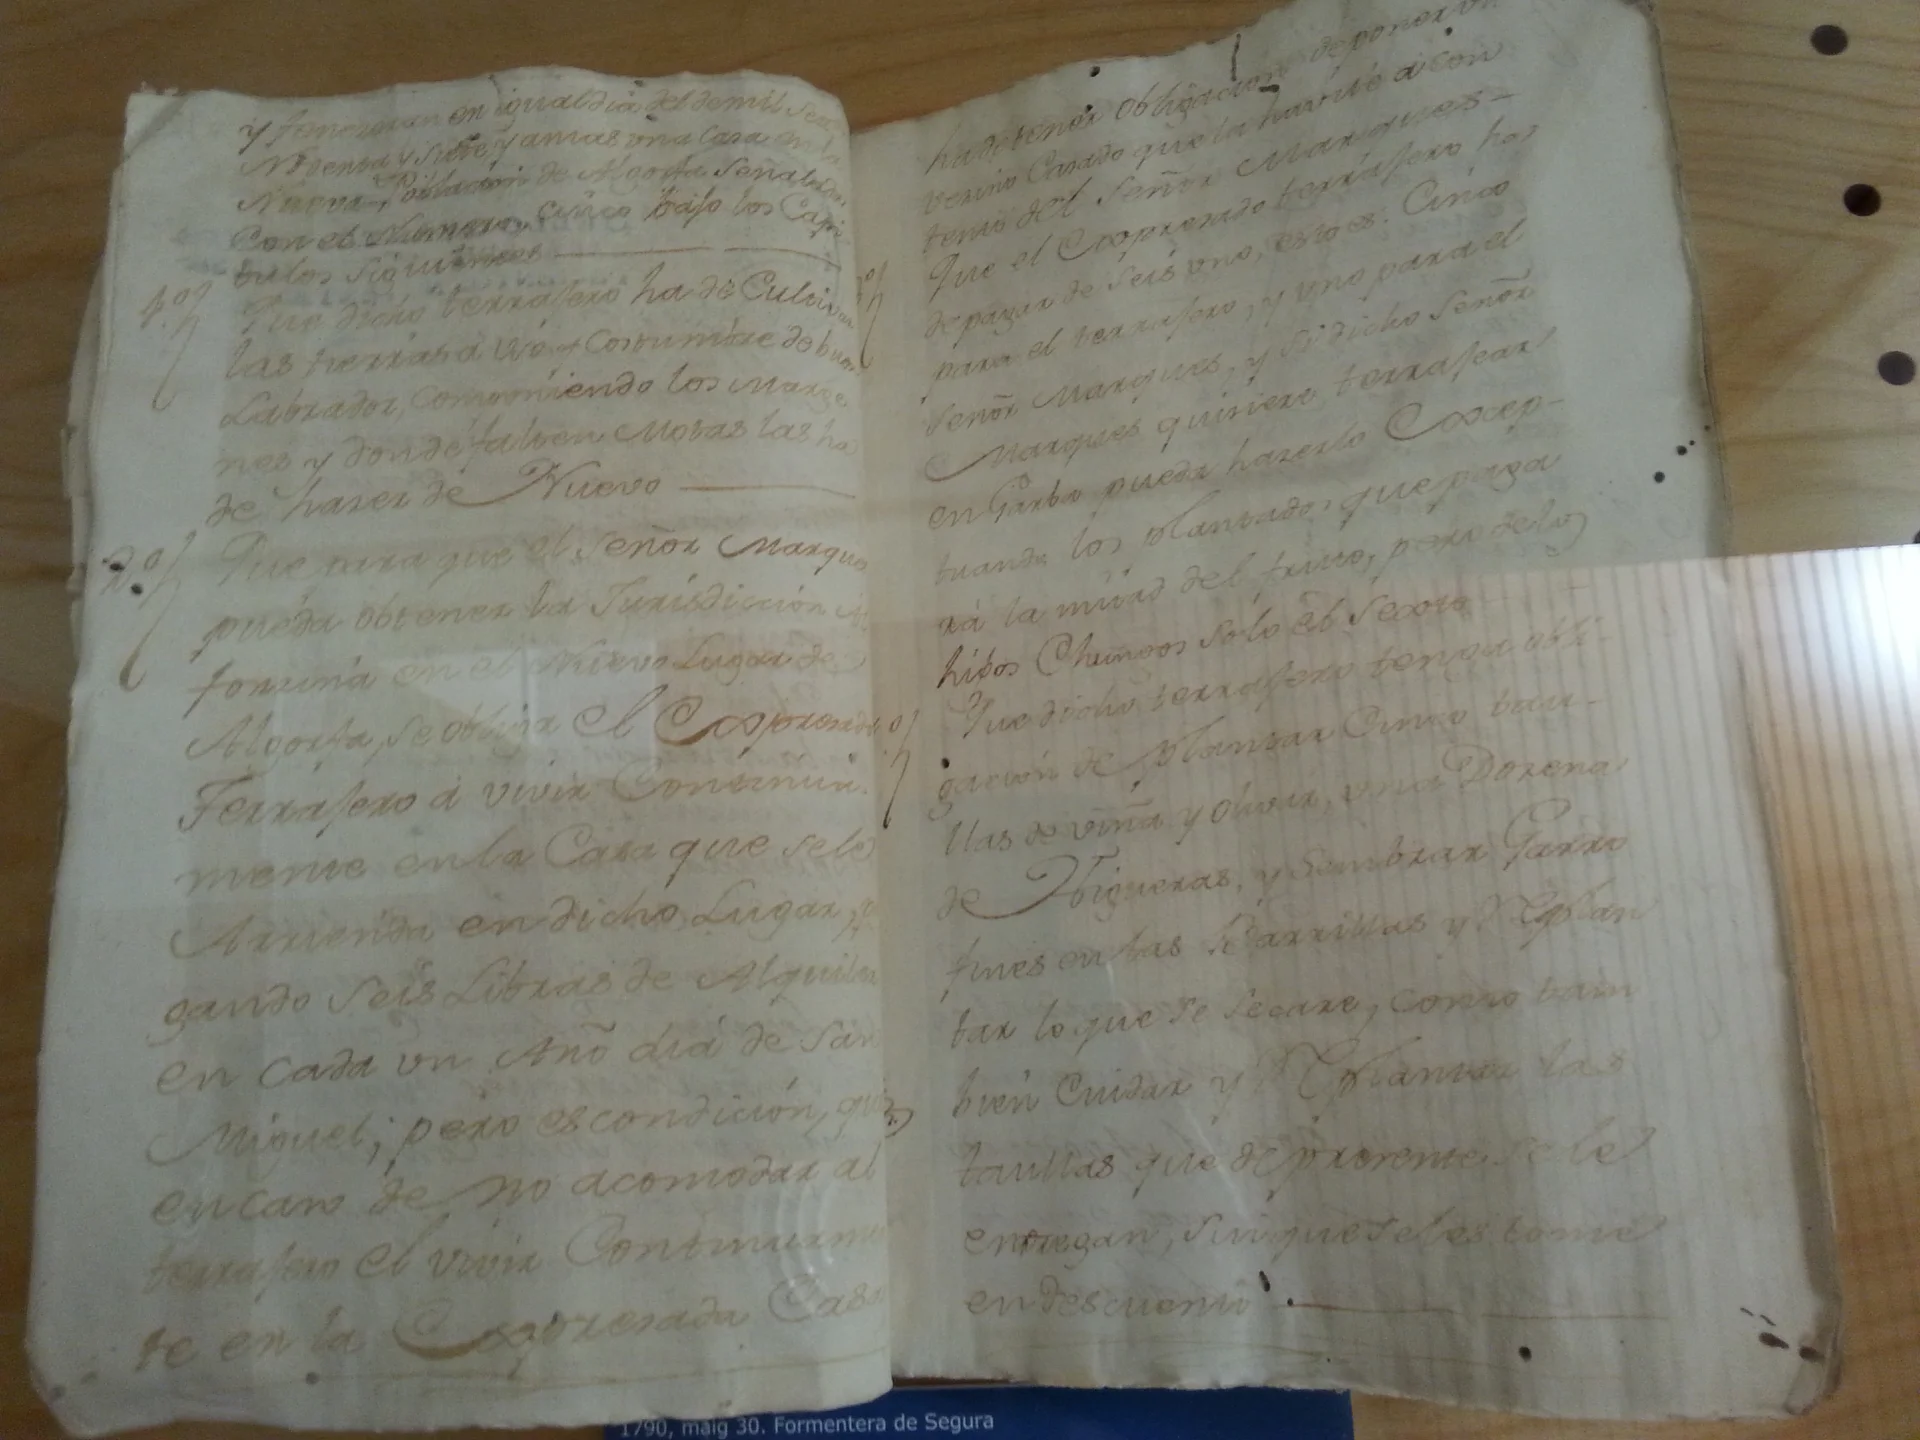 y feneceran en igual dia del de mil Sete
Noventa y Siete, y a mas vna Casa en la
Nueva Poblacion de Algorfa Señalada
Con el Numero, Cinco bajo los Capi
tulos Siguientes
1.º
Que dicho terrajero ha de Cultivar
las tierras a vso y Costumbre de buen
Labrador, Componiendo los Marge
nes y donde falten Motas las ha
de hazer de Nuevo
2.º
Que para que el Señor Marques
pueda obtener la Jurisdiccion Al
fonsina en el Nuevo Lugar de
Algorfa, se obliga el Expresado
Terrajero á vivir Continua
mente en la Casa que se le
Arrienda en dicho Lugar, pa
gando Seis Libras de Alquiler
en cada vn Año dia de San
Miguel; pero es condicion, que
en caso de no acomodar al
terrajero el vivir Continuamen
te en la Expresada Casa
ha de tener obligacion de poner vn
vezino Casado que la havite á con
tento del Señor Marques
Que el Expresado terrajero ha
de pagar de Seis vno, esto es: Cinco
para el terrajero, y vno para el
Señor Marques, y si dicho Señor
Marques quisiere terrajear
en Garba pueda hazerlo Excep-
tuando los plantados que paga
rá la mitad del fruto, pero de los
higos Chumbos Solo el Sexto
Que dicho terrajero tenga obli-
gacion de plantar Cinco tau-
llas de viña y olivar, vna Dozena
de Higueras, y Sembrar Garro
fines en las Parrillas y Replan
tar lo que se secare, como tam
bien Cuidar y Replantar las
taullas que de presente se le
entregan, sin que se les tome
en descuento
1790, maig 30. Formentera de Segura